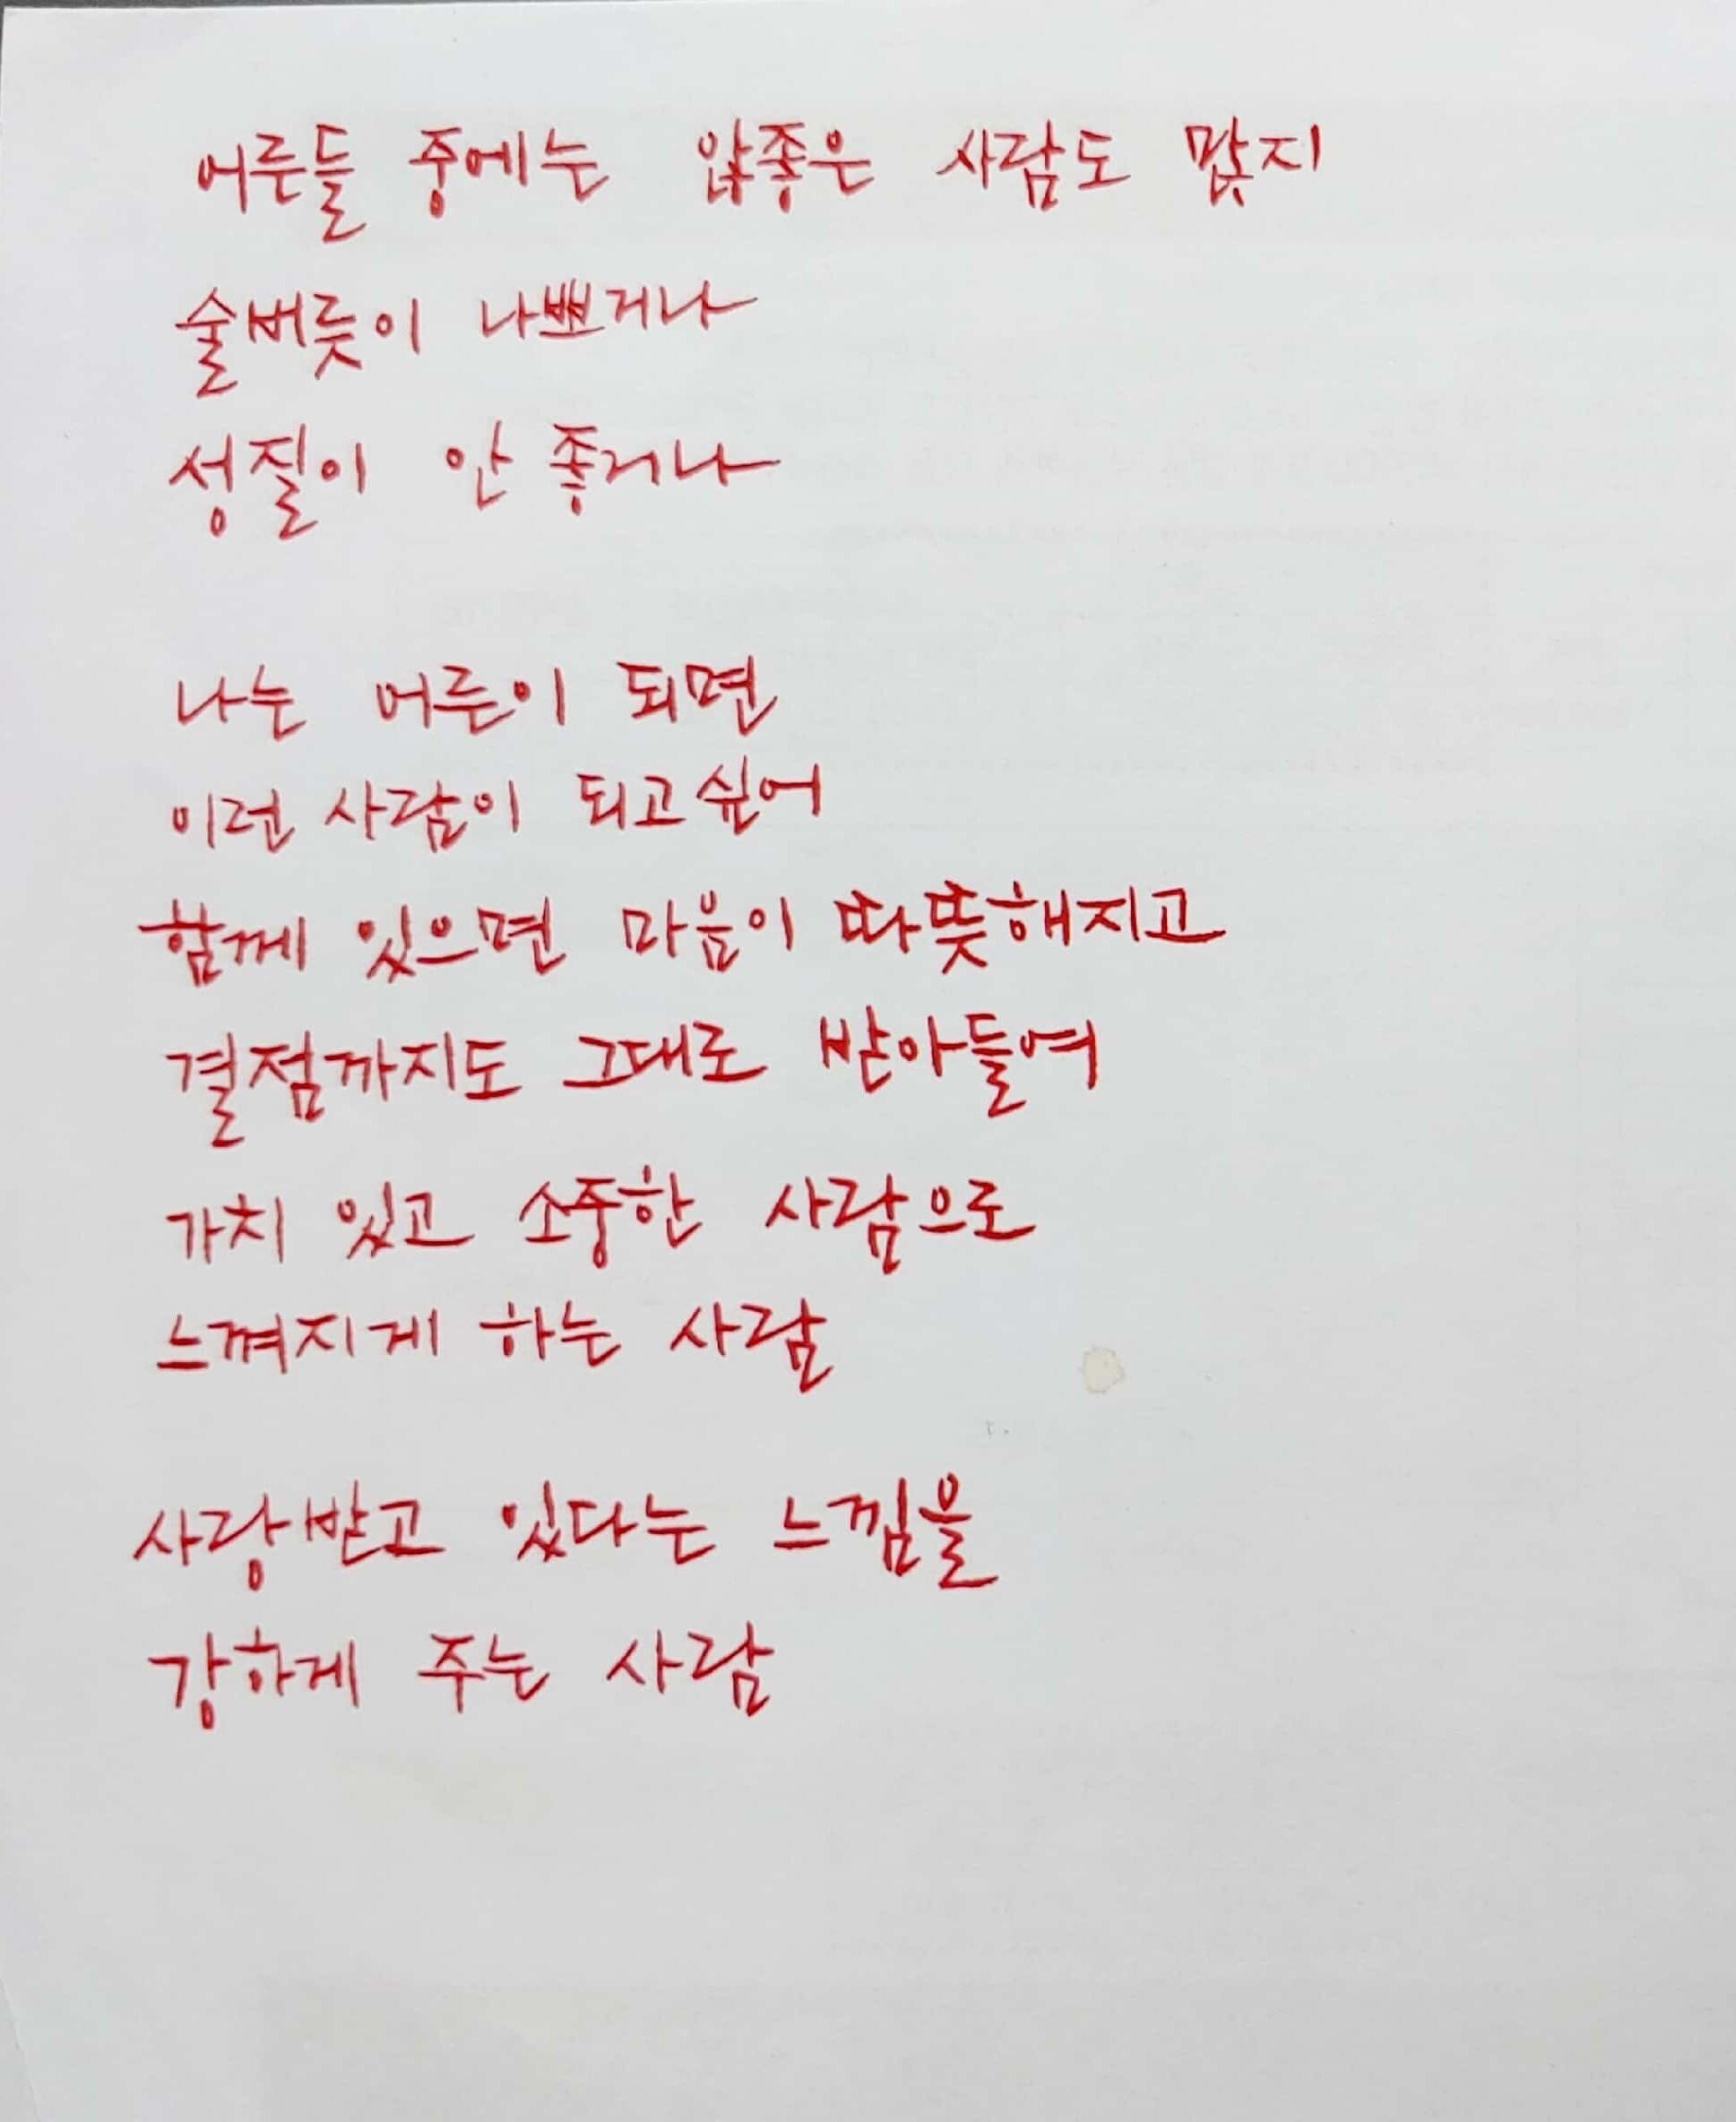 어른들 중에는 않좋은 사람도 많지
술버릇이 나쁘거나
성질이 안 좋거나
나는 어른이 되면
이런 사람이 되고싶어
함께 있으면 마음이 따뜻해지고
결점까지도 그대로 받아들여
가치 있고 소중한 사람으로
느껴지게 하는 사람
사랑받고 있다는 느낌을
강하게 주는 사람